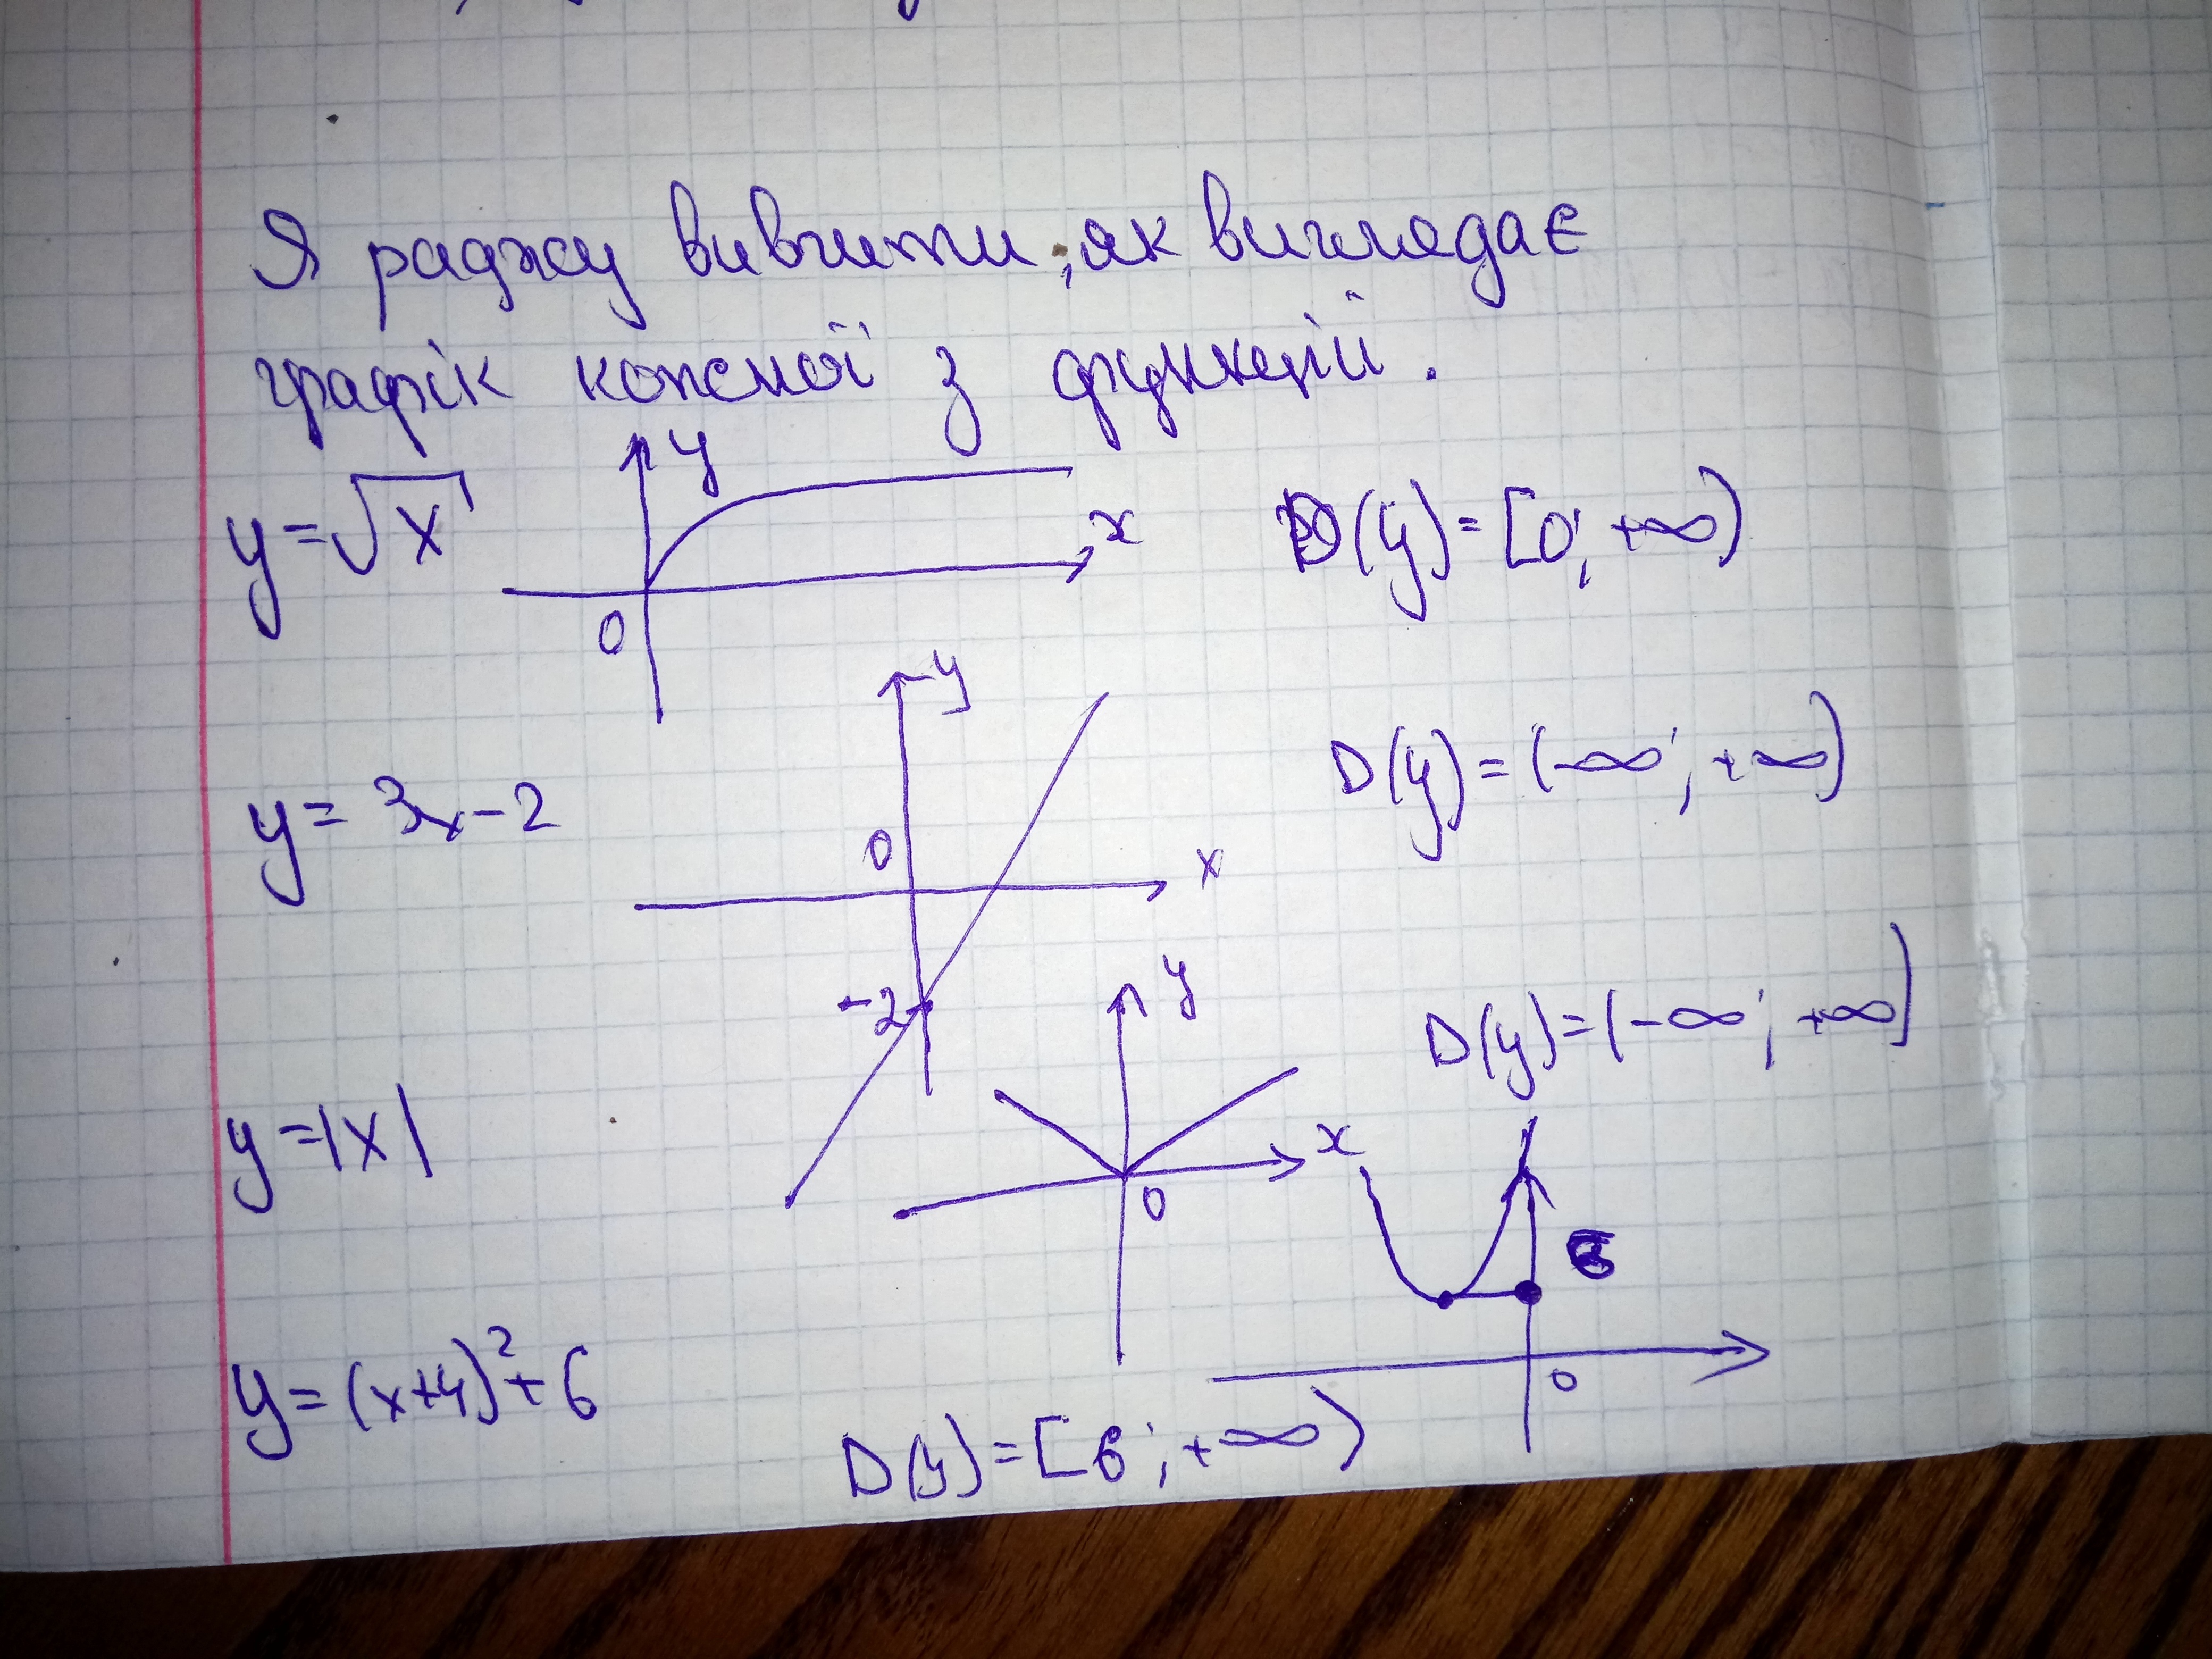 Я раджу вивчити, як виглядає
графік кожної з функцій.
y=√x
y
x
0
D(y)=[0;+∞)
y=3x-2
y
0
x
-2
D(y)=(-∞;+∞)
y=|x|
y
x
0
D(y)=(-∞;+∞)
y=(x+4)²+6
6
0
D(y)=[6;+∞)